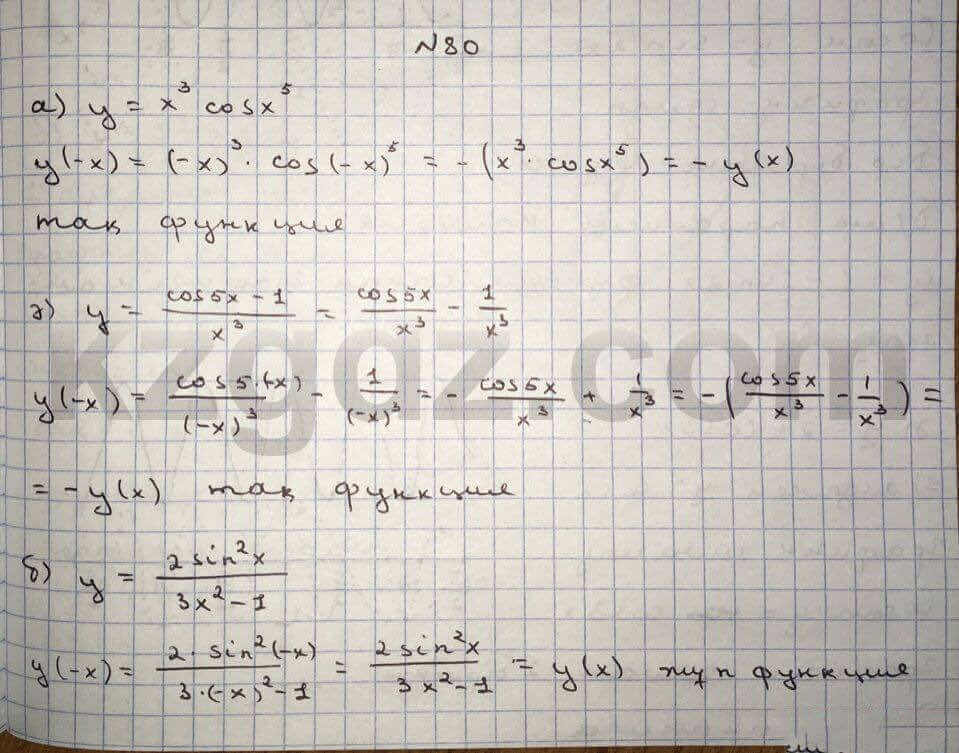 N80
а) y = x³ cosx⁵
y(-x) = (-x)³ · cos(-x)⁵ = -(x³ · cosx⁵) = -y(x)
тақ функция
г) y = (cos5x - 1)/x³ = cos5x/x³ - 1/x³
y(-x) = cos5·(-x)/(-x)³ - 1/(-x)³ = - cos5x/x³ + 1/x³ = -(cos5x/x³ - 1/x³) =
= -y(x) тақ функция
kzgdz.com
б) y = 2sin²x/(3x²-1)
y(-x) = 2·sin²(-x)/(3·(-x)²-1) = 2sin²x/(3x²-1) = y(x) жұп функция